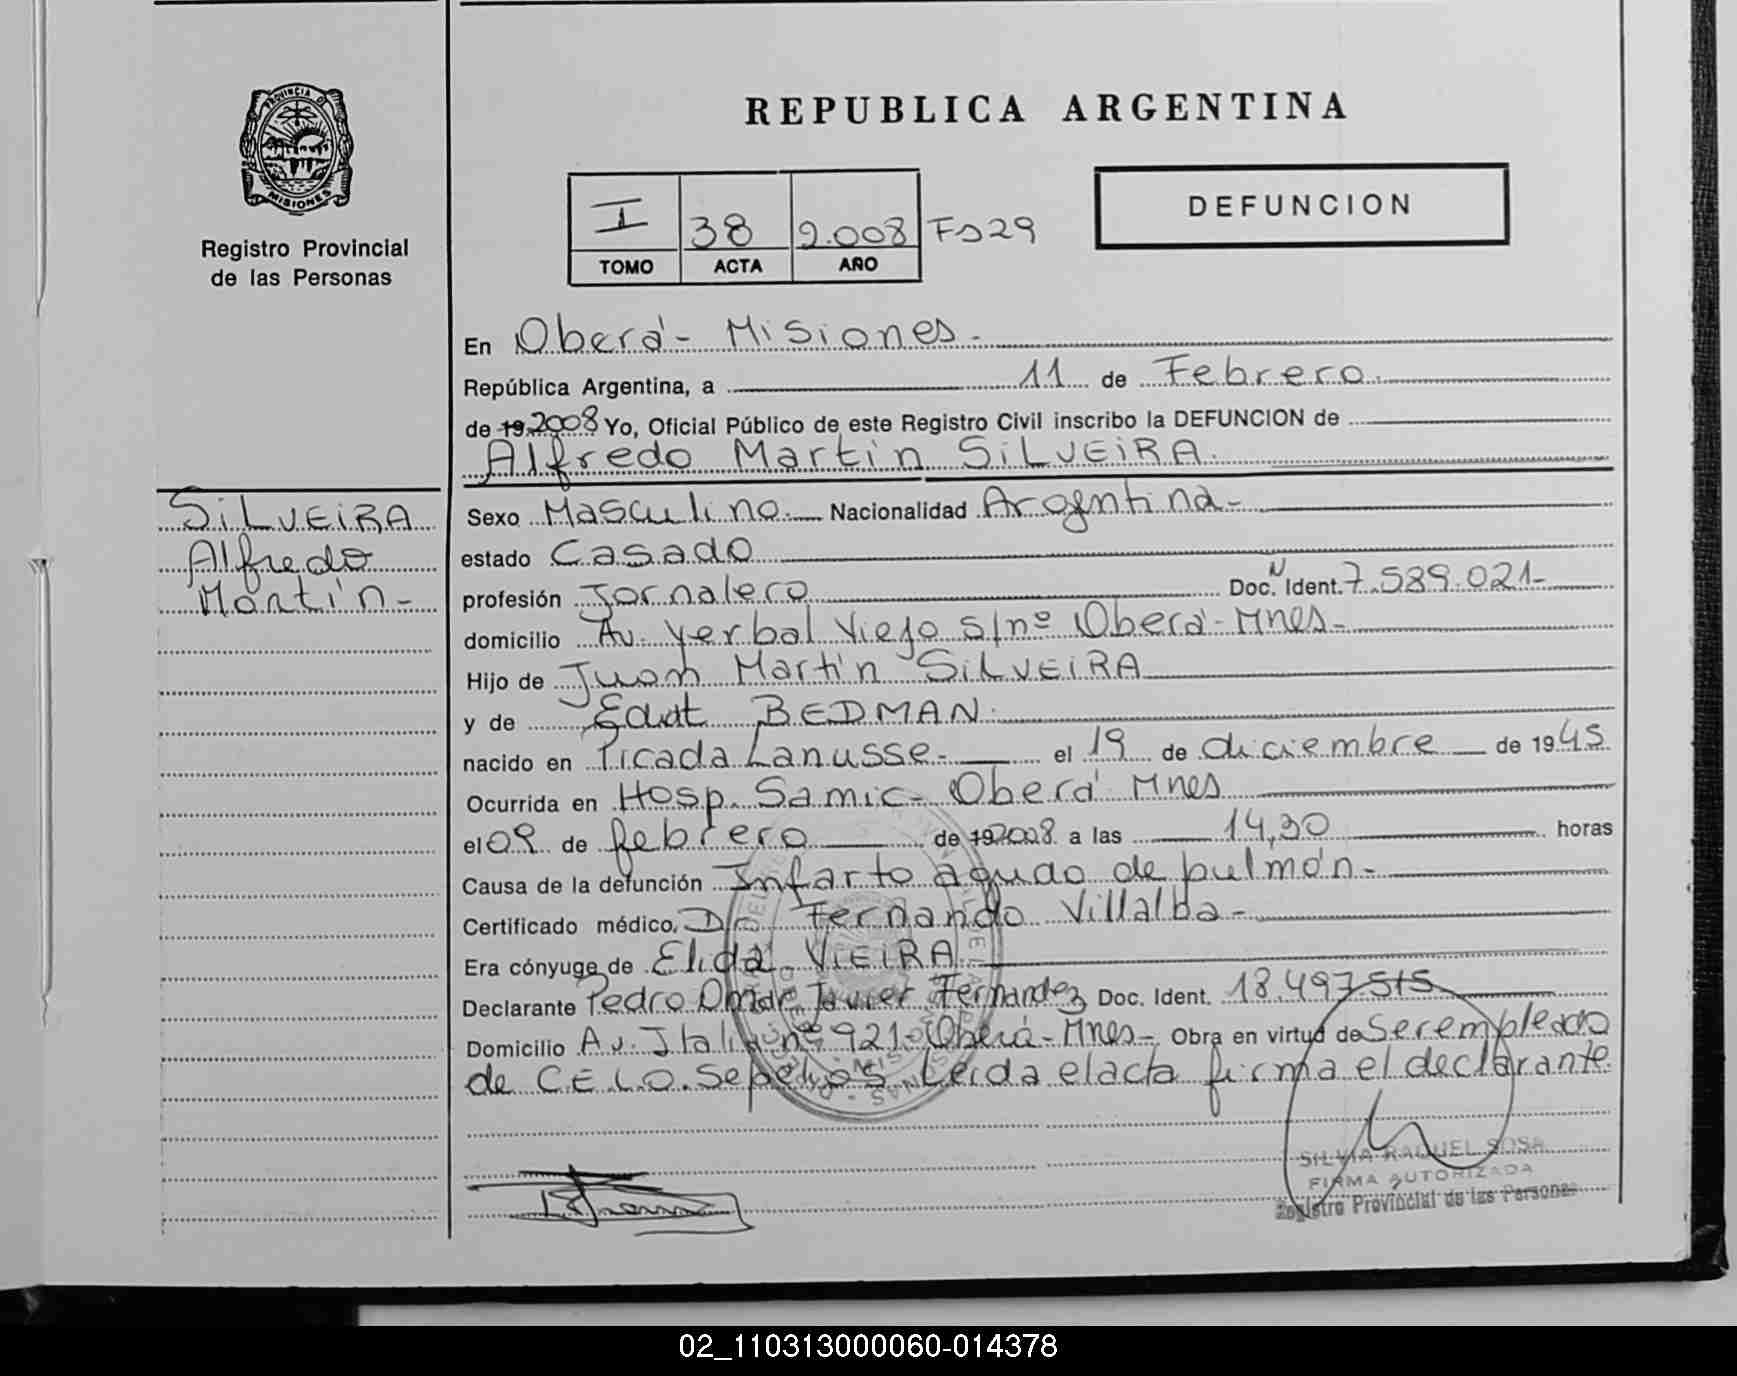 PROVINCIA DE
MISIONES
Registro Provincial
de las Personas
REPUBLICA ARGENTINA
I 38 2.008 Fo 29
TOMO ACTA AÑO
DEFUNCION
En Oberá - Misiones.
República Argentina, a 11 de Febrero.
de 19 2008 Yo, Oficial Público de este Registro Civil inscribo la DEFUNCION de
Alfredo Martín SiLVEiRA.
SiLVEiRA
Alfredo
Martín-
Sexo Masculino. Nacionalidad Argentina-
estado Casado
profesión Jornalero Doc. N Ident. 7.589.021-
domicilio Av. Yerbal Viejo s/nº Oberá-Mnes-
Hijo de Juan Martín SiLVEiRA
y de BEDMAN.
nacido en Picada Lanusse- el 19 de diciembre de 1945
Ocurrida en Hosp. Samic- Oberá Mnes
el 09 de febrero de 19 2008 a las 14,30 horas
Causa de la defunción Infarto agudo de pulmón-
Certificado médico, Dr. Fernando Villalba-
Era cónyuge de Elida VIEIRA
Declarante Pedro Omar Javier Fernandez Doc. Ident. 18.497.515
Domicilio Av. Italia nº 921-Oberá-Mnes- Obra en virtud de Ser empleado
de C.E.L.O. Sepelios. Leida el acta firma el declarante.
SILVIA RAQUEL SOSA
FIRMA AUTORIZADA
Registro Provincial de las Personas
02_110313000060-014378